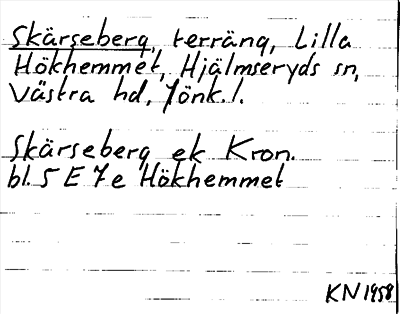 Skärseberg, terräng, Lilla
Hökhemmet, Hjälmseryds sn,
Västra hd, Jönk. l.
Skärseberg ek Kron.
bl. 5 E 7 e Hökhemmet
KN 1958